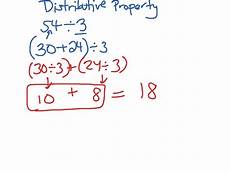 Distributive Property
54 ÷ 3
(30+24) ÷ 3
(30÷3)+(24÷3)
10 + 8 = 18